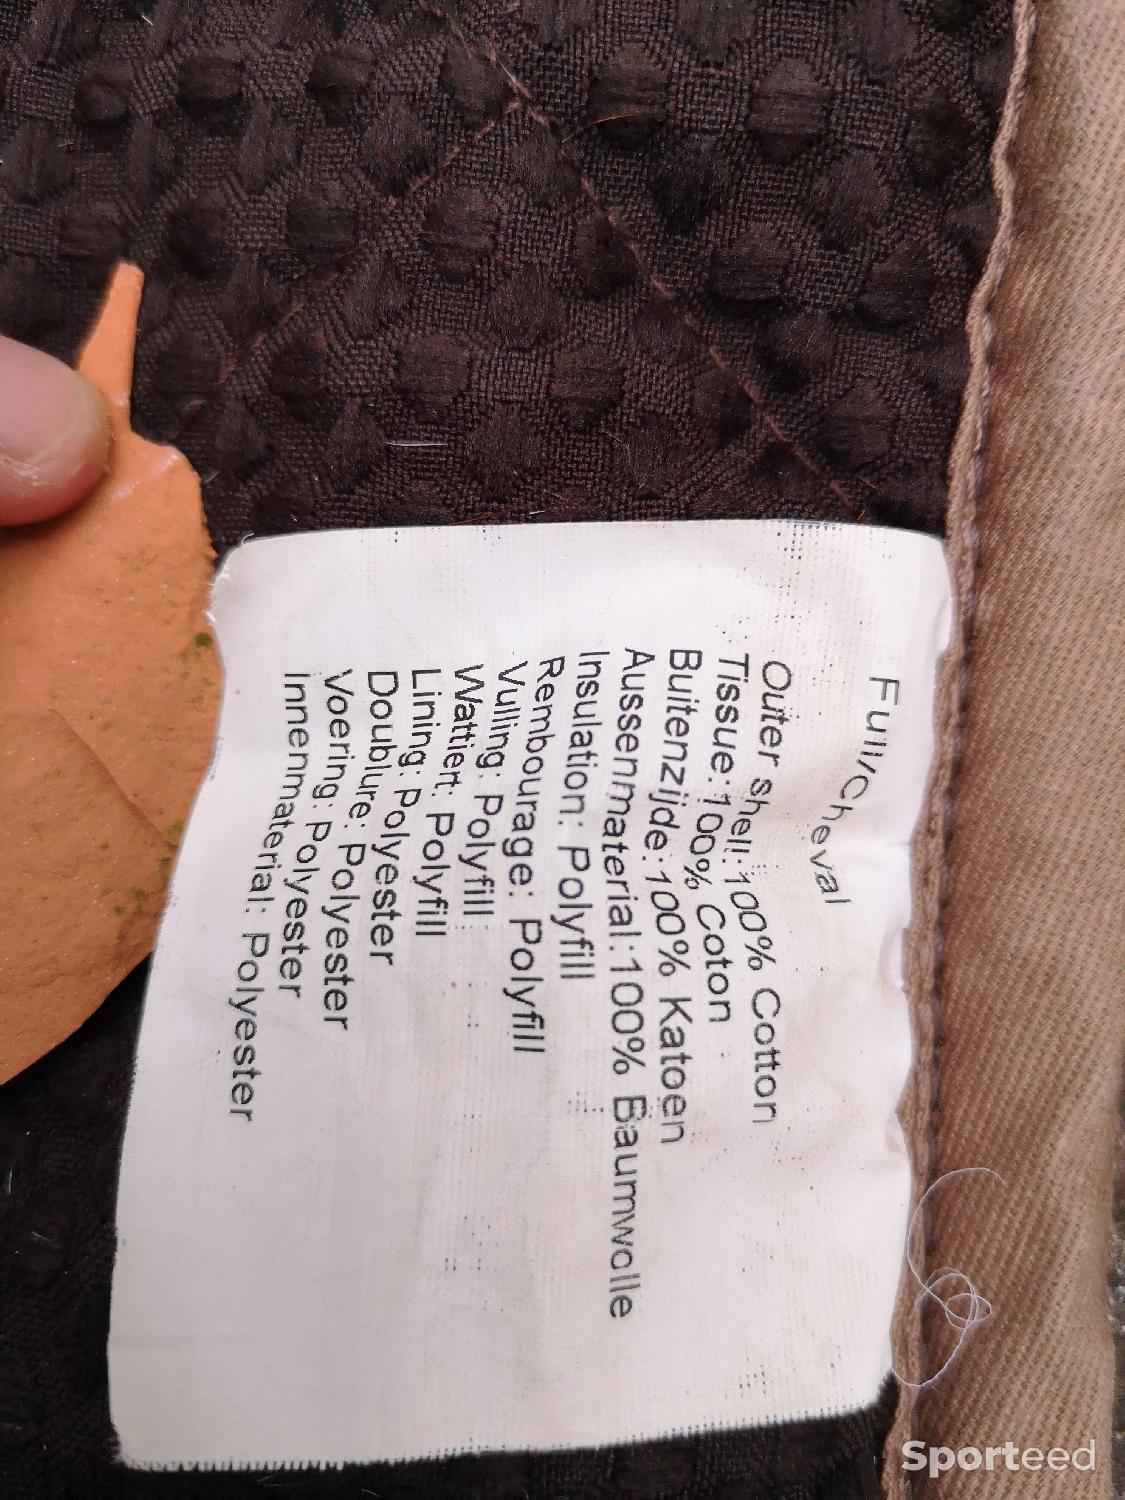 Full/Cheval
Outer shell:100% Cotton
Tissue:100% Coton
Buitenzijde:100% Katoen
Aussenmaterial:100% Baumwolle
Insulation: Polyfill
Rembourage: Polyfill
Vulling: Polyfill
Wattiert: Polyfill
Lining: Polyester
Doublure: Polyester
Voering: Polyester
Innenmaterial: Polyester
Sporteed